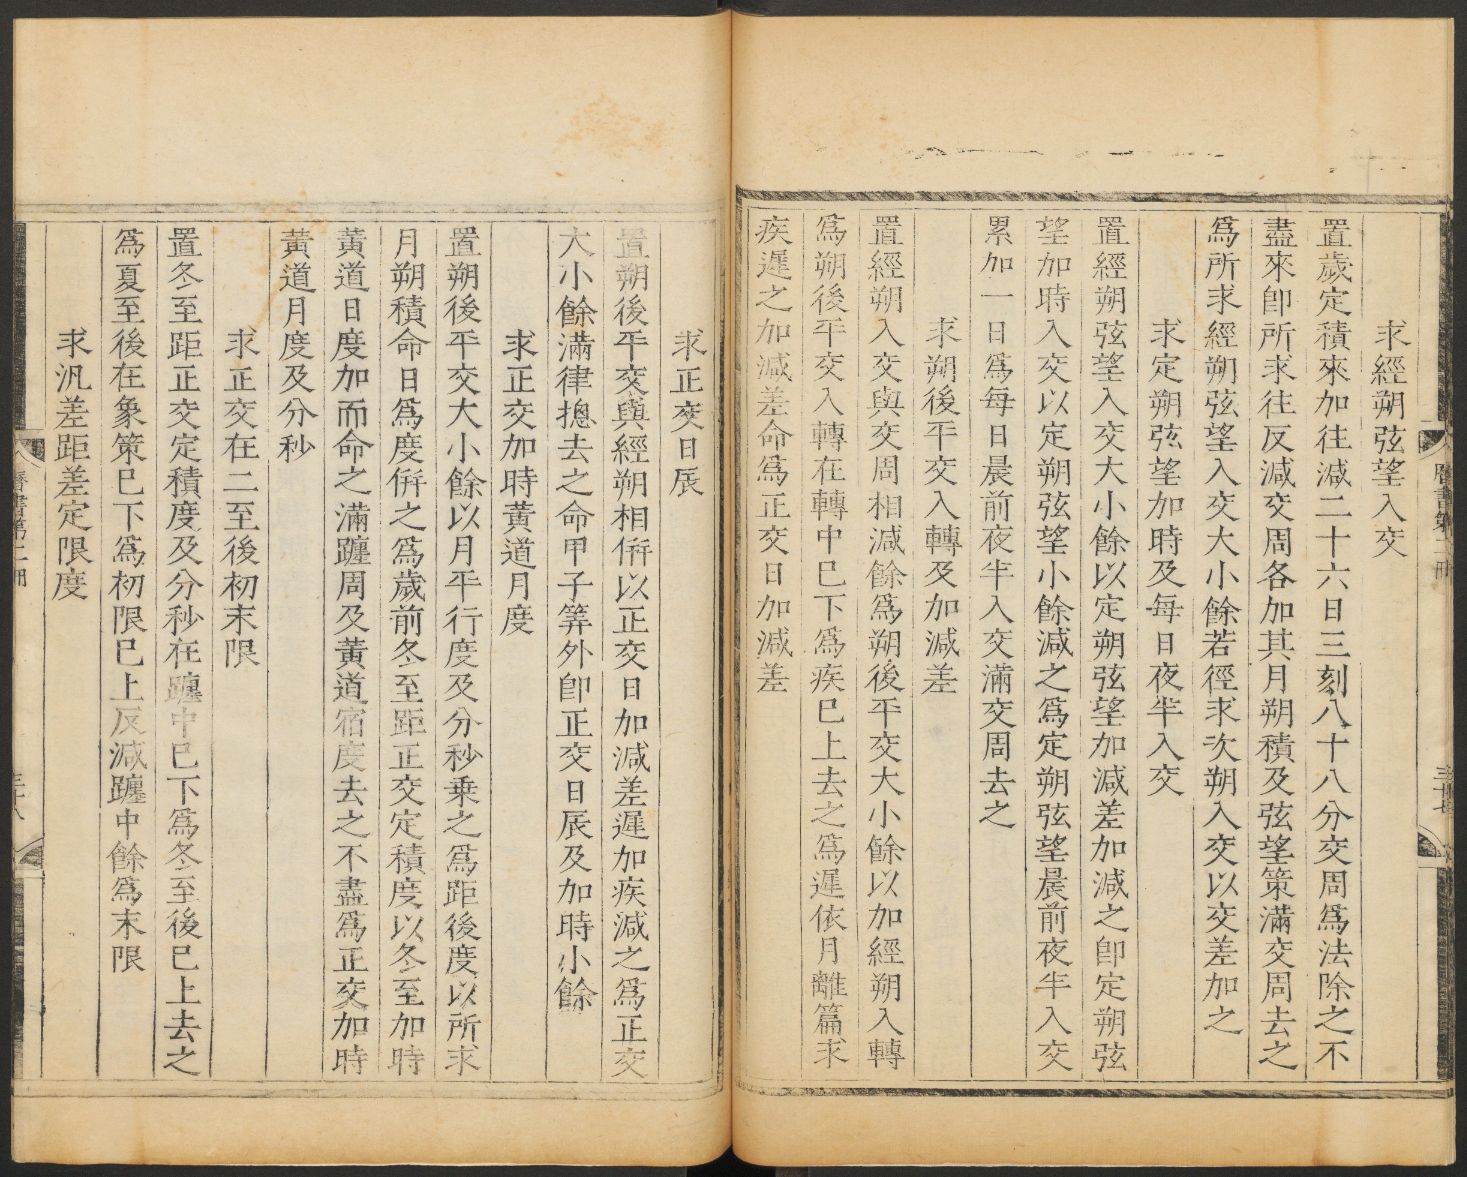 求經朔弦望入交
置歲定積來加往減二十六日三刻八十八分交周爲法除之不
盡來卽所求往反減交周各加其月朔積及弦望策滿交周去之
爲所求經朔弦望入交大小餘若徑求次朔入交以交差加之
求定朔弦望加時及每日夜半入交
置經朔弦望入交大小餘以定朔弦望加減差加減之卽定朔弦
望加時入交以定朔弦望小餘減之爲定朔弦望晨前夜半入交
累加一日爲每日晨前夜半入交滿交周去之
求朔後平交入轉及加減差
置經朔入交與交周相減餘爲朔後平交大小餘以加經朔入轉
爲朔後平交入轉在轉中巳下爲疾巳上去之爲遲依月離篇求
疾遲之加減差命爲正交日加減差
求正交日辰
置朔後平交與經朔相倂以正交日加減差遲加疾減之爲正交
大小餘滿律摠去之命甲子筭外卽正交日辰及加時小餘
求正交加時黃道月度
置朔後平交大小餘以月平行度及分秒乗之爲距後度以所求
月朔積命日爲度倂之爲歲前冬至距正交定積度以冬至加時
黃道日度加而命之滿躔周及黃道宿度去之不盡爲正交加時
黃道月度及分秒
求正交在二至後初末限
置冬至距正交定積度及分秒在躔中巳下爲冬至後巳上去之
爲夏至後在象策巳下爲初限巳上反減躔中餘爲末限
求汎差距差定限度
曆書第二冊
三十七
曆書第二冊
三十八